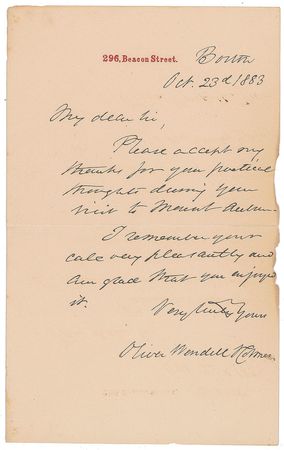 296, Beacon Street.
Boston
Oct. 23d 1883
My dear Sir,
Please accept my
thanks for your poetical
thoughts during your
visit to Mount Auburn.
I remember your
call very pleasantly and
am glad that you enjoyed
it.
Very truly Yours
Oliver Wendell Holmes